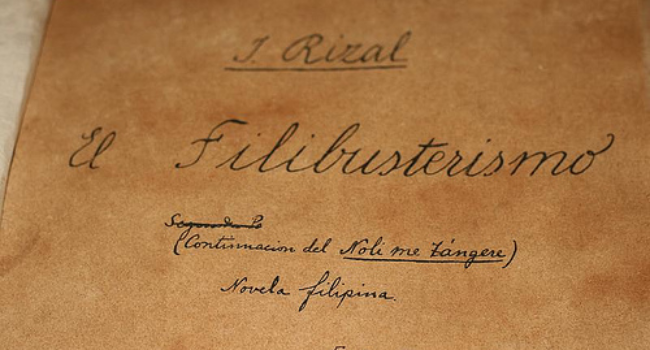 J. Rizal
El Filibusterismo
Segunda Pa
(Continuacion del Noli me tángere)
Novela filipina.